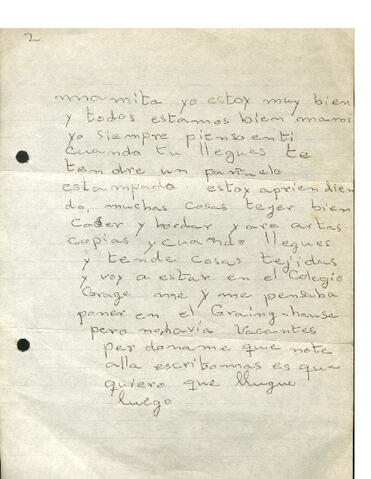 2
mamita yo estoy muy bien
y todos estamos bien mami
yo siempre pienso en ti
cuando tu llegues te
tendre un pañuelo
estampado. estoy apriendien
do, muchas cosas tejer bien
Coser y bordar y
copias y cuando llegues
y tende cosas tejidas
y voy a estar en el Colegio
me y me pensaba
poner en el
pero no,havia Vacantes
per doname que note
alla escrito mas es que
quiero que llugue
luego